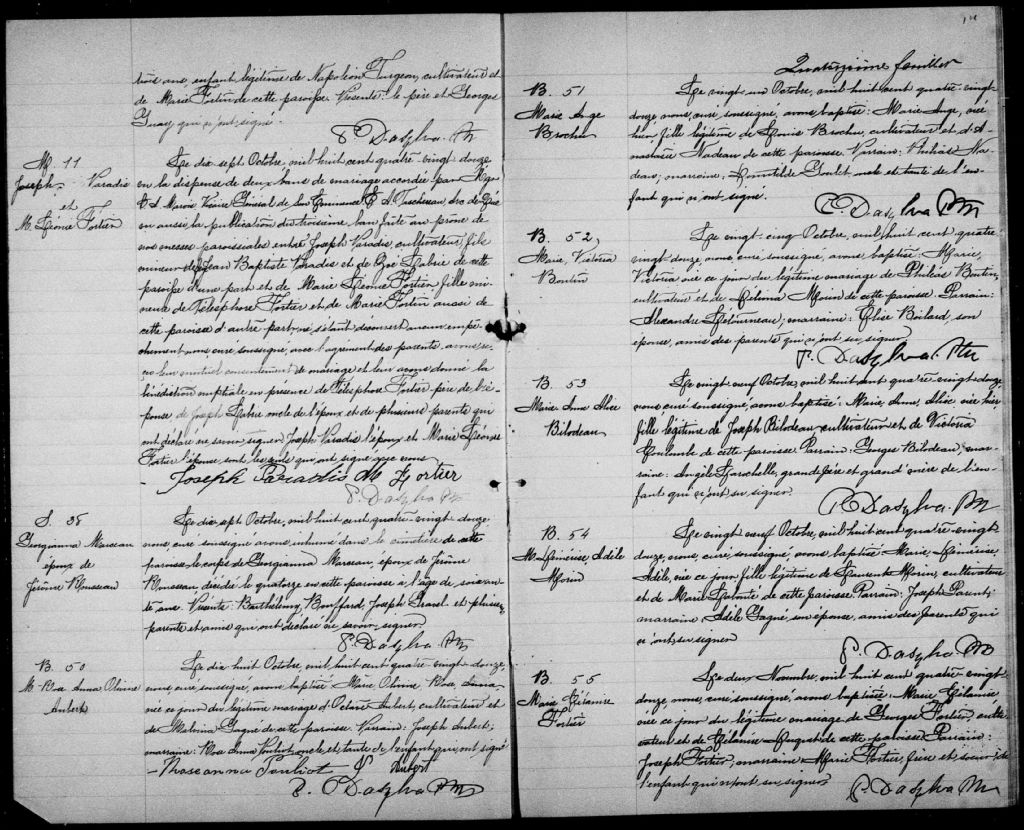 trois ans, enfant légitime de Napoléon Turgeon, cultivateur et
de Marie Fortin de cette paroisse. Présents: le père et Georges
Guay qui n'ont signé.
P. Dasylva Ptre
M. 11
Joseph Paradis
et
M. Léonie Fortier
Le dix sept Octobre, mil huit cent quatre-vingt douze
vu la dispense de deux bans de mariage accordée par Mgr
C A Marois Vicaire Général de Son Eminence E A Taschereau, Arc de Québec
vu aussi la publication du troisième ban faite au prône de
nos messes paroissiales entre Joseph Paradis, cultivateur, fils
mineur de Jean Baptiste Paradis et de Zoé Labrie de cette
paroisse d'une part et de Marie Léonie Fortier fille mi-
neure de Télesphore Fortier et de Marie Fortin aussi de
cette paroisse d'autre part, ne s'étant découvert aucun empê-
chement nous curé soussigné, avec l'agrément des parents avons re-
çu leur mutuel consentement de mariage et leur avons donné la
bénédiction nuptiale en présence de Télesphore Fortier père de l'é-
pouse de Joseph Labrie oncle de l'époux et de plusieurs parents qui
ont déclaré ne savoir signer. Joseph Paradis l'époux et Marie Léonie
Fortier l'épouse, sont les seuls qui ont signé avec nous
Joseph Paradis M Fortier
P. Dasylva Ptre
S. 38
Georgianna Marceau
épouse de
Jérôme Rousseau
Le dix sept Octobre, mil huit cent quatre-vingt douze
nous curé soussigné avons inhumé dans le cimetière de cette
paroisse le corps de Georgianna Marceau, épouse de Jérôme
Rousseau décédée le quatorze en cette paroisse à l'âge de soixan-
te ans. Présents: Barthélemy Bouffard, Joseph et plusieurs
parents et amis qui ont déclaré ne savoir signer
P. Dasylva Ptre
B. 50
M. Rose Anna Olivine
Aubert
Le dix huit Octobre, mil huit cent quatre-vingt douze,
nous curé soussigné, avons baptisé Marie Olivine Rose Anna
née ce jour du légitime mariage d'Octave Aubert, cultivateur et
de Malvina Gagné de cette paroisse. Parrain: Joseph Aubert;
marraine: Rose Anna Pouliot, oncle et tante de l'enfant qui ont signé
Roseanna Pouliot J Aubert
P. Dasylva Ptre
Quatorzième feuillet
B. 51
Marie Ange
Brochu
Le vingt un Octobre, mil huit cent quatre-vingt-
douze, nous, curé, soussigné, avons baptisé: Marie Ange, née
hier, fille légitime de Louis Brochu, cultivateur et d'A-
nastasie Nadeau de cette paroisse. Parrain: Philias Na-
deau, marraine: Goulet oncle et tante de l'en-
fant qui n'ont signé.
P. Dasylva Ptre
B. 52,
Marie, Victoria
Boutin
Le vingt-cinq Octobre, mil huit cent quatre-
vingt-douze, nous curé soussigné, avons baptisé: Marie,
Victoria née ce jour du légitime mariage de Philéas Boutin,
cultivateur et de Célina Morin de cette paroisse. Parrain:
Alexandre Létourneau, marraine: Elise Boilard, son
épouse, amis des parents qui n'ont su signer
P. Dasylva Ptre
B. 53
Marie Anne Alice
Bilodeau
Le vingt neuf Octobre, mil huit cent quatre-vingt-douze,
nous curé soussigné, avons baptisé: Marie, Anne, Alice née hier
fille légitime de Joseph Bilodeau, cultivateur et de Victoria
Coulombe de cette paroisse. Parrain: Georges Bilodeau, mar-
raine: Angèle Larochelle, grand père et grand'mère de l'en-
fant qui n'ont su signer.
P. Dasylva Ptre
B. 54
M. Adèle
Morin
Le vingt neuf Octobre, mil huit cent quatre-vingt-
douze, nous, curé, soussigné, avons baptisé: Marie,
Adèle, née ce jour fille légitime de Laurent Morin, cultivateur
et de Marie Labonté de cette paroisse. Parrain: Joseph Parent;
marraine Adèle Gagné son épouse, amis des parents qui
n'ont su signer
P. Dasylva Ptre
B. 55
Marie Célanire
Fortier
Le deux Novembre, mil huit cent quatre-vingt-
douze, nous, curé, soussigné, avons baptisé: Marie Célanire
née ce jour du légitime mariage de Georges Fortier, culti-
vateur et de Célanire de cette paroisse. Parrain:
Joseph Fortier, marraine Marie Fortier, frère et soeur de
l'enfant qui n'ont su signer
P. Dasylva Ptre